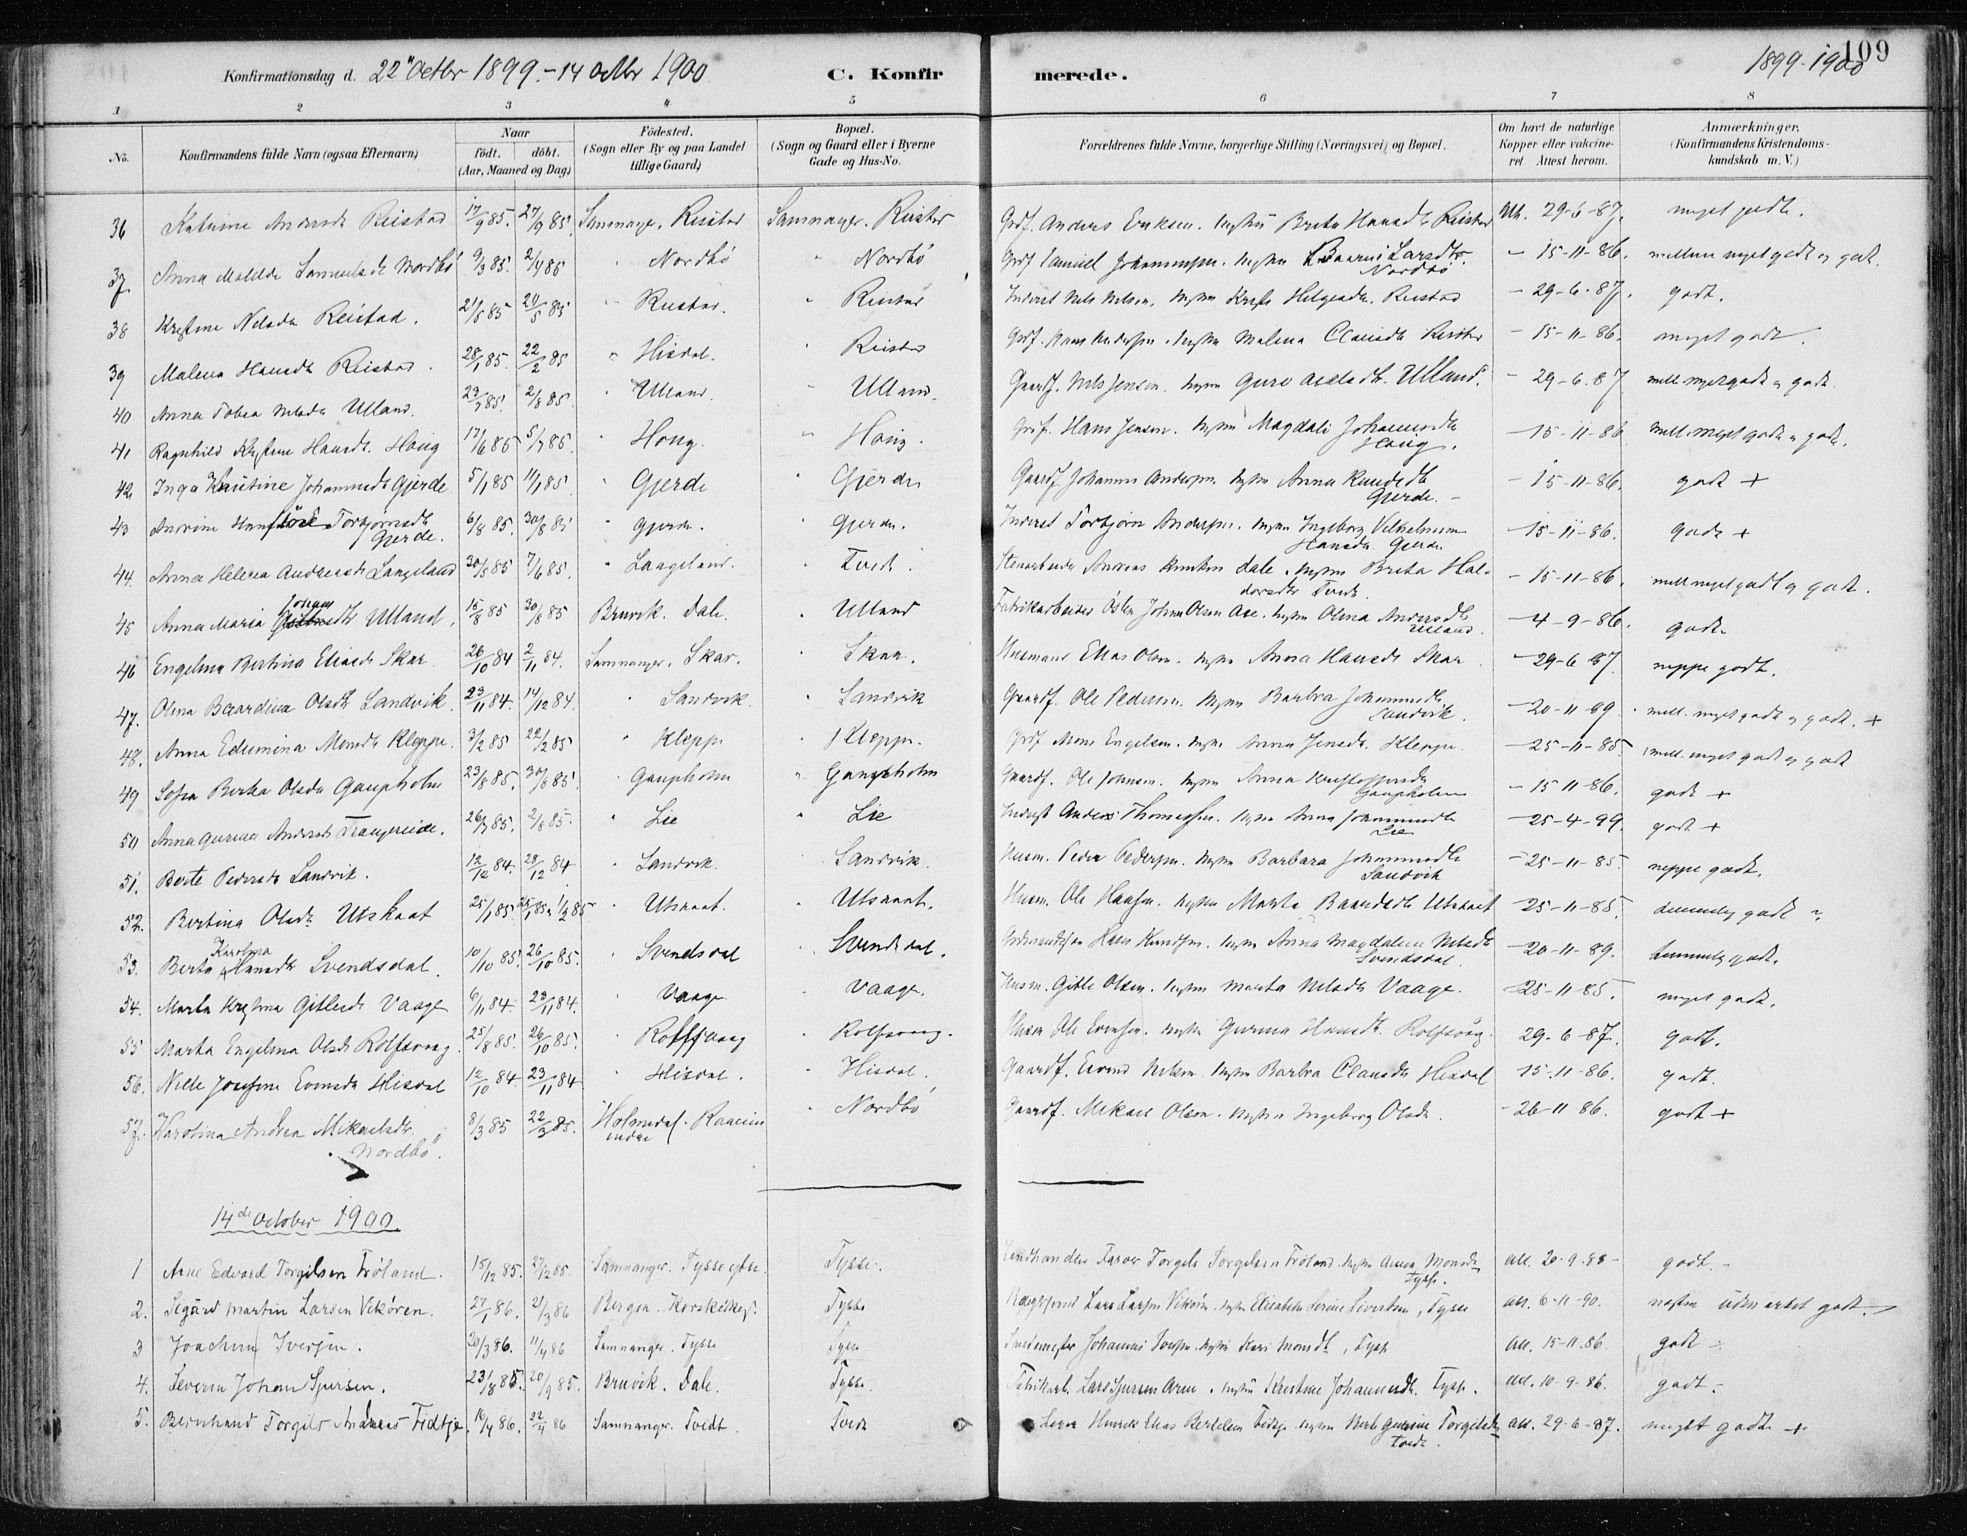 Konfirmationsdag d. 22 Octbr 1899.-14 Octbr 1900 C. Konfirmerede. 1899-1900 109
1 2 3 4 5 6 7 8
No. Konfirmandens fulde Navn (ogsaa Efternavn) Naar födt. döbt. (Aar, Maaned og Dag) Födested. (Sogn eller By og paa Landet tillige Gaard) Bopæl. (Sogn og Gaard eller i Byerne Gade og Hus-No. Forældrenes fulde Navne, borgerlige Stilling (Næringsvei) og Bopæl. Om havt de naturlige Kopper eller vakcineret. Attest herom. Anmærkninger. (Konfirmandens Kristendomskundskab m. V.)
36 Katrine Andersdt Reistad 17/9 85. 27/9 85. Samnanger. Reistad Samnanger. Reistad Grdf. Anders Eriksen. hustru Brita Hansdt Reistad Att. 29-6-87. meget godt.
37 Anna Matilde Samuelsdt Nordbö 9/3 85. 2/4 85 " Nordbö " Nordbö Grdf Samuel Johannessen. hustru Larsdtr. Nordbö - 15-11-86. mellem meget godt og godt.
38 Kristine Nelsdtr Reistad. 21/5 85 Reistad. " Reistad Inderst Nels Nelsen. hustru Helgesdtr. Reistad - 29-6-87. godt.
39 Malena Hansdtr Reistad. 28/1 85. 22/2 85 " Hisdal. " Reistad Grdf. Hans Andersen. hustru Malena Clausdtr Reistad - 15-11-86. meget godt.
40 Anna Tobea Nelsdtr Ulland. 23/7 85. 2/8 85. " Ulland. " Ulland. Gaardf. Nels Jensen. hustru Guro Ulland. - 29-6-87 mell. meget godt og godt.
41 Ragnhild Kristine Hansdt. Haug 17/6 85 5/7 85. " Haug. " Haug. Grdf. Hans Jensen. hustru Magdali Johannesdt Haug. - 15-11-86 mell. meget godt og godt.
42 Inga Kristine Johannesdt Gjerde 5/1 85 11/1 85. " Gjerde " Gjerde Gaardf. Johannes Andersen. hustru Anna Gjerde. - 15-11-86. godt +
43 Torbjørnsdt Gjerde. 6/8 85. 30/8 85 " Gjerde. " Gjerde. Inderst Torbjørn Andersen. hustru Ingeborg Vilhelmine Hansdt. Gjerde - 15-11-86. godt +
44. Anna Helena Andreasdt Langeland 30/5 85 7/6 85. " Langeland. " Tvedt. Andreas Knutsen Dale. hustru Brita Haldorsdtr Tvedt. - 15-11-86. mell meget godt og godt.
45 Anna Maria Johans dtr Ulland. 15/8 85 30/8 85 Bruvik. Dale. " Ulland Fabrikarbeider Østen Johan Olsen Aae. hustru Olina Andersdtr Ulland. - 4-9-86. godt.
46 Engelina Bertina Eliasdt Skar 26/10 84 2/11 84. Samnanger. Skar. " Skar. Husmand Elias Olsen. hustru Anna Hansdt Skar - 29-6 87. neppe godt.
47. Olina Baardina Olsdt Sandvik. 23/11 84. 14/12 84. " Sandvik. " Sandvik Gaardf. Ole Pedersen. hustru Barbra Johannesdtr Sandvik. - 20-11-99. mell. meget godt og godt. +
48. Anna Edemina Monsdt Kleppe. 3/2 85 22/2 85 " Kleppe " Kleppe. Grdf Mons Engelsen. hustru Anna Jensdt. Kleppe. - 25-11-85 mell. meget godt og godt
49 Sofia Berta Olsdtr Gaupholm 23/8 85. 30/8 85 " Gaupholm " Gaupholm Gaardf. Ole Johnsen. hustru Anna Kristoffersdtr Gaupholm - 15-11-86. godt +
50 Anna Gurina Andersdt Frangereide. 26/7 85. 2/8 85. " Lie " Lie Inderst Anders Thomassen. hustru Anna Johannesdtr Lie - 25-4-99. godt +
51. Berte Pedersdt Sandvik. 12/12 84. 28/12 84 " Sandvik. " Sandvik. Husm. Peder Pedersen. hustru Barbara Johannesdtr Sandvik - 25-11-85 neppe godt.
52. Bertina Olsdt. Utskaat 25/1 85 1/3 85 " Utskaat. " Utskaat. Husm. Ole Hansen. hustru Marta Baardsdtr Utskaat - 25-11-85. temmelig godt
53. Berta Karolina Hansdt Svendsdal. 10/10 85. 26/10 85. " Svendsdal " Svendsdal. Hans Knudsen. hustru Anna Magdalena Nelsdtr Svendsdal. - 20-11-89. temmelig godt.
54. Marta Kristina Gitlesdt Vaage 6/11 84. 23/11 84. " Vaage. " Vaage. Husm. Gitle Olsen. hustru Marta Nelsdtr Vaage. - 25-11-85. meget godt.
55 Marta Engelina Olsdt Rolfsvaag. 25/8 85. 26/10 85. " Rolfsvaag " Rolfsvaag. Husm Ole Evensen. hustru Gurina Hansdt. Rolfsvaag. 29-6-87. godt.
56. Nille Josefine Hisdal 12/10 84 23/11 84 " Hisdal. " Hisdal. Gaardf. Nelsen. hustru Barbra Clausdtr Hisdal 15-11-86. godt.
57. Karolina Andrea Mikaelsdt Nordbö. 8/3 85 22/3 85. Holmedal. " Nordbö Gaardf. Mikael Olsen. hustru Ingeborg Olsdtr. - 26-11-86. godt +
14de October 1900.
1 Arne Edvard Torgilsen Frøland. 15/12 85. 27/12 85. Samnanger. Tysse Tysse. Landhandler Torgels Torgelsen Frøland. hustru Anna Monsdtr Tysse. Att. 20-9-88 godt. -
2. Sigurd Martin Larsen Vikøren. 27/1 86. 21/3 86 Bergen. Korskirkes. Tysse Lars Larsen Vikøren. hustru Elisabeth Serine Sivertsen, Tysse Att. 6-11-90. næsten godt.
3 Joachim Iversen. 20/3 86. 11/4 86 Samnanger. Tysse Tysse Johannes Iversen. hustru Kari Monsdt, Tysse Att. 15-11-86. godt
4. Severin Johan Sjursen. 23/8 85. 20/9 85. Bruvik. Dale. Tysse. Fabrikarb. Lars Sjursen Arne. hustru Kristine Johannesdt. Tysse. Att. 10-9-86. godt.
5. Bernhard Torgils Andreas Fidtje. 10/4 86. 22/4 86 Samnanger. Tvedt. Tvedt Henrik Elias Bertelsen Fidtje. hustru Gurine Torgilsdtr Tvedt. Att. 29-6-87. meget godt +